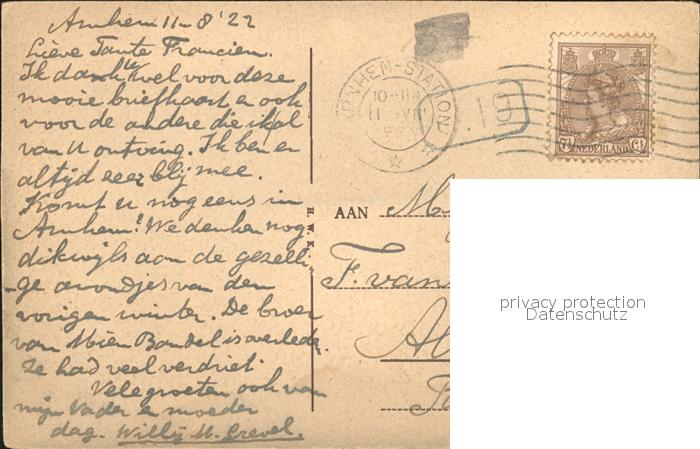 Arnhem 11-8'22
Lieve Tante Francien.
Ik dank U wel voor deze
mooie briefkaart en ook
voor de andere die ik al
van U ontving. Ik ben er
altijd zeer blij mee.
Komt u nog eens in
Arnhem? We denken nog
dikwijls aan de gezelli-
ge avondjes van den
vorigen winter. De broer
van Mien Bandel is overleden.
Ze had veel verdriet.
Vele groeten ook van
mijn Vader en moeder
dag. Willy M. Grevel.
H. W. K.
ARNHEM-STATION
10-11
11 VIII
19
7½ NEDERLAND Ct
AAN
F. van
privacy protection
Datenschutz